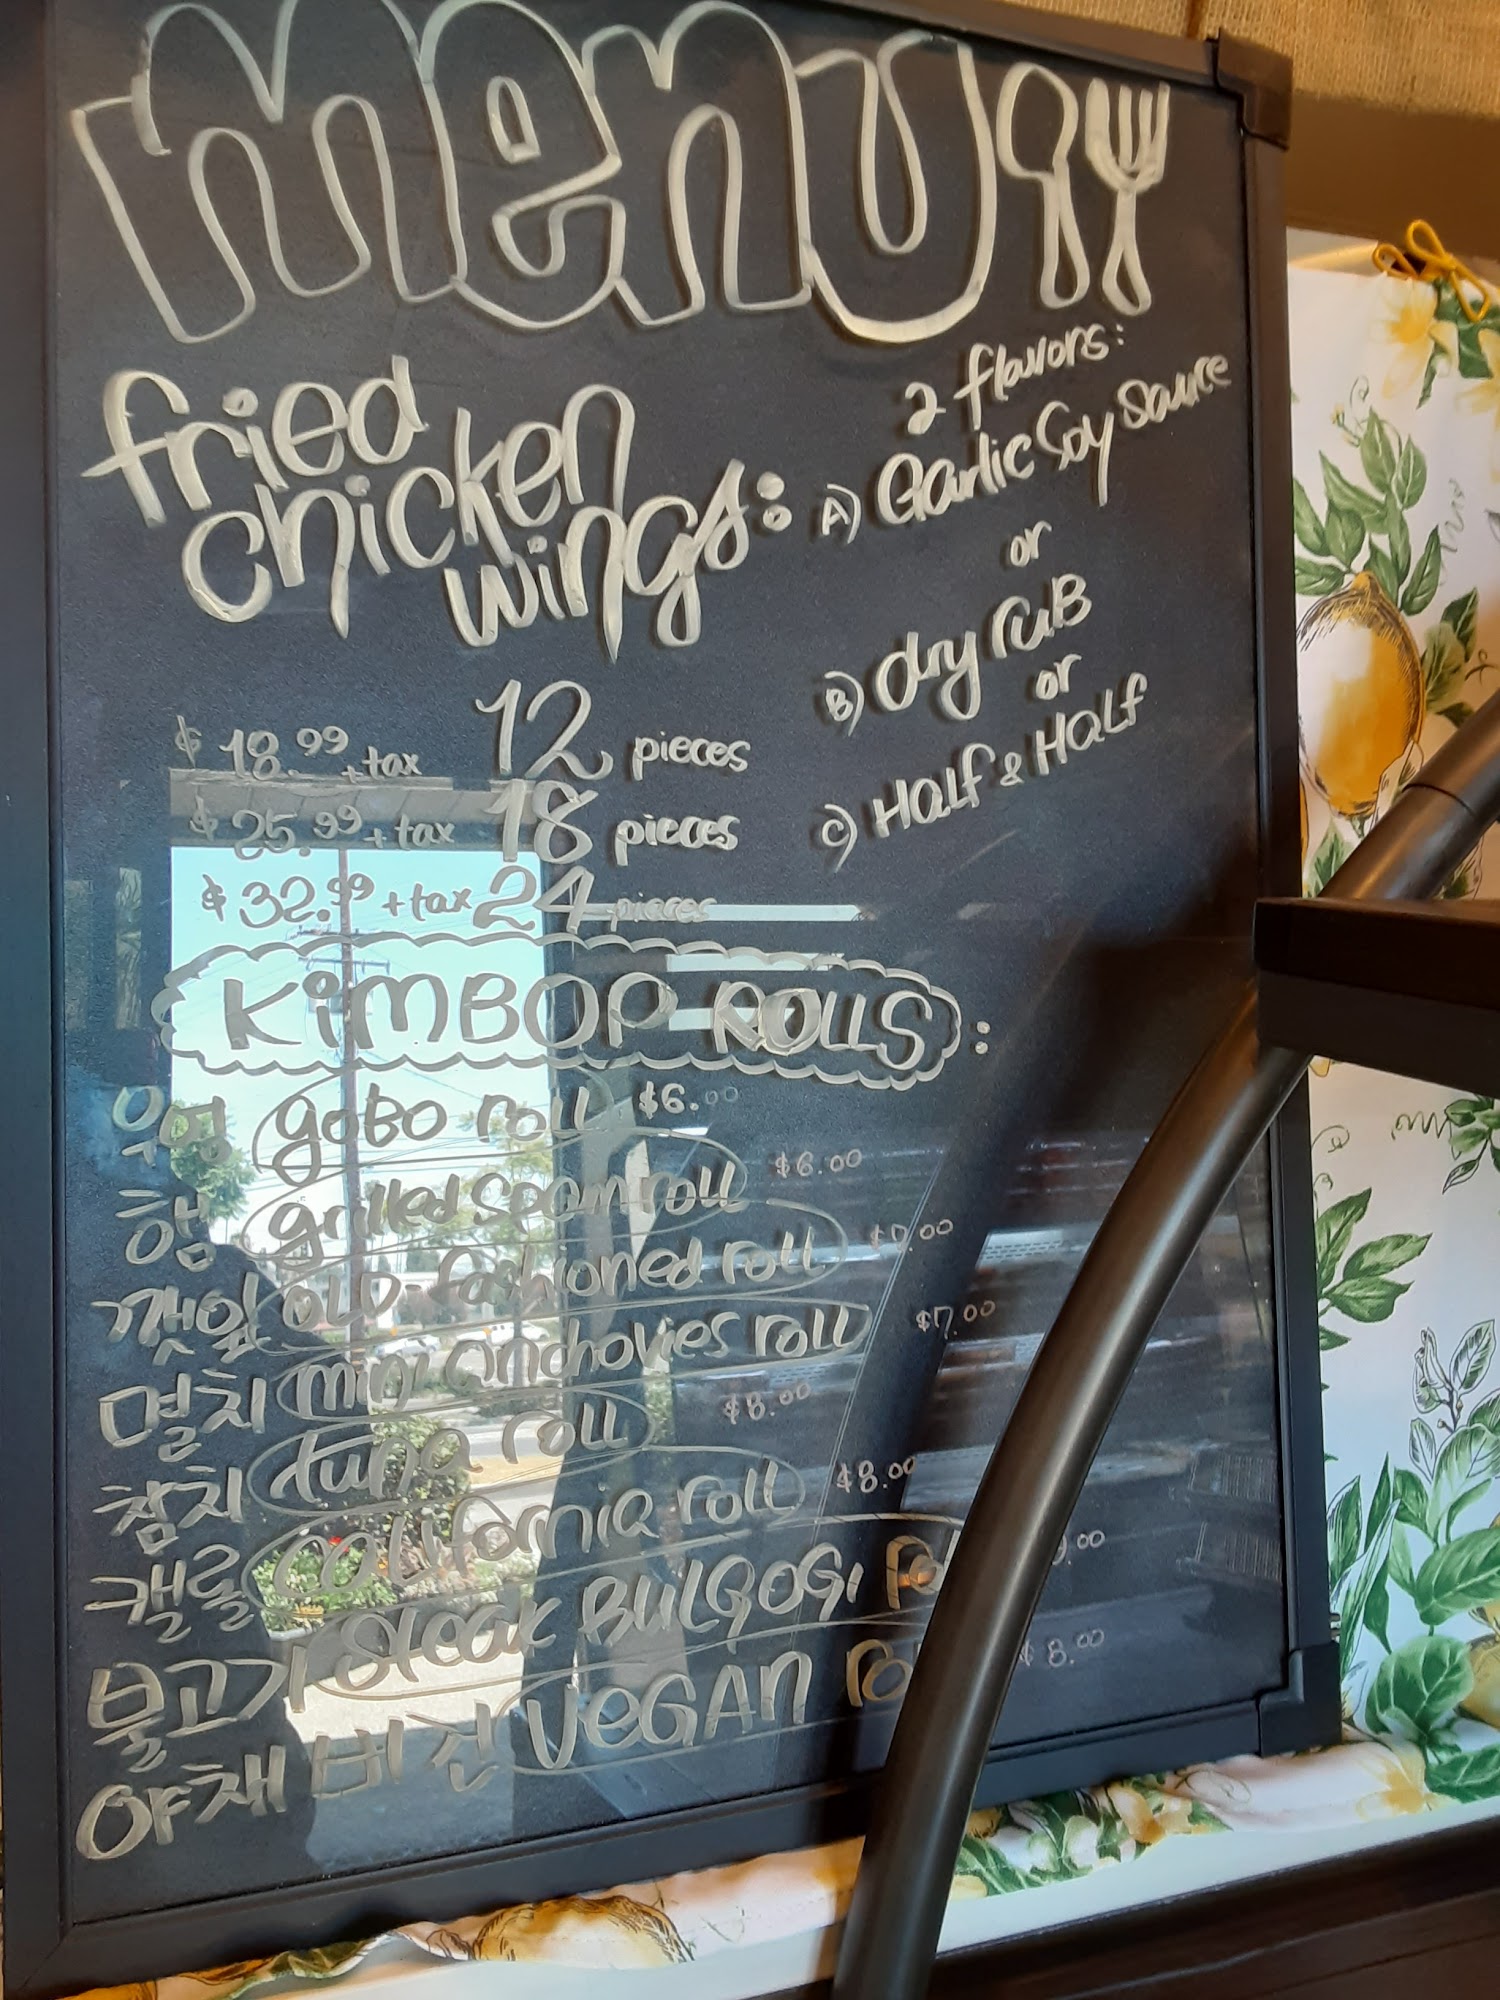 menu
fried
chicken
wings:
2 flavors:
A) Garlic Soy Sauce
or
B) dry ruB
or
C) Half & Half
$18.99 + tax 12 pieces
$25.99 + tax 18 pieces
$32.99 + tax 24 pieces
KiMBOP ROLLS:
우엉 goBo roll $6.00
햄 grilled Spam roll $6.00
깻잎 OLD-fashioned roll
멸치 mini anchovies roll $7.00
참치 tuna roll $8.00
캘롤 california roll $8.00
불고기 Steak BULGOGi
야채 비건 VeGAn $8.00